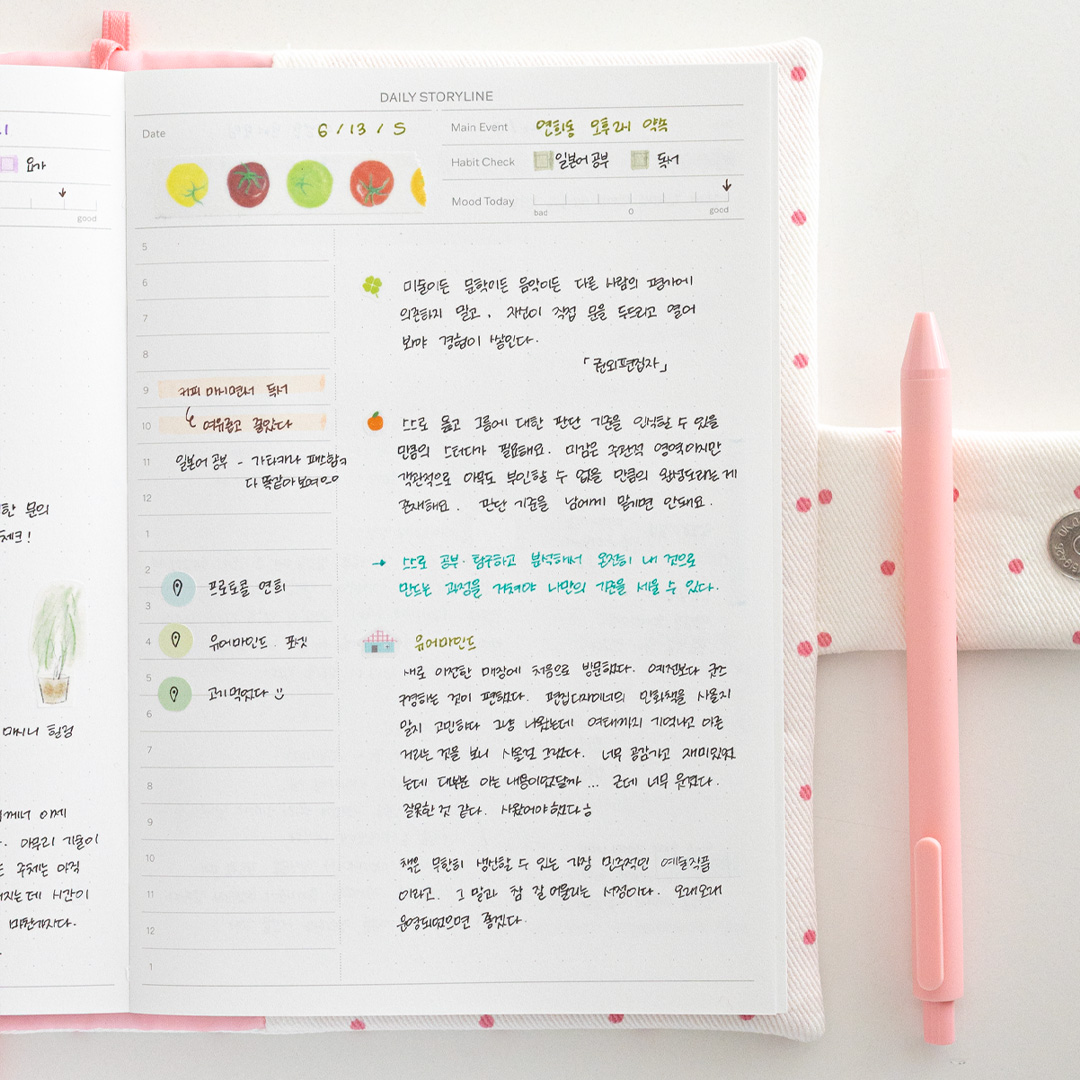 .1
요가
good
한 문의
체크!
마시니 힐링
께서 이제
. 아무리 기술이
는 주체는 아직
해지는데 시간이
마찬가지다.
DAILY STORYLINE
Date 6 / 13 / S
Main Event 연희동 오후 2시 약속
Habit Check 일본어 공부 독서
Mood Today bad 0 good
5
6
7
8
9 커피 마시면서 독서
10 여유롭고 좋았다
11 일본어 공부 - 가타카나 패스함ㅋ
다 똑같아 보여ㅇㅇ
12
1
2
프로토콜 연희
3
4 유어마인드 . 포셋
5
고기 먹었다
6
7
8
9
10
11
12
1
미술이든 문학이든 음악이든 다른 사람의 평가에
의존하지 말고 , 자신이 직접 문을 두드리고 열어
봐야 경험이 쌓인다.
「권외편집자」
스스로 옳고 그름에 대한 판단 기준을 인식할 수 있을
만큼의 스터디가 필요해요. 미감은 주관적 영역이지만
객관적으로 아무도 부인할 수 없을 만큼의 완성도라는 게
존재해요. 판단 기준을 남에게 맡기면 안돼요.
→ 스스로 공부·탐구하고 분석해서 온전히 내 것으로
만드는 과정을 거쳐야 나만의 기준을 세울 수 있다.
유어마인드
새로 이전한 매장에 처음으로 방문했다. 예전보다 굿즈
구경하는 것이 편했다. 편집디자이너의 만화책을 사올지
말지 고민하다 그냥 나왔는데 여태까지 기억나고 아른
거리는 것을 보니 사올걸 그랬다. 너무 공감가고 재미있었
는데 대부분 아는 내용이었달까... 근데 너무 웃겼다.
잘못한 것 같다. 사왔어야 했다
책은 무한히 생산할 수 있는 가장 민주적인 예술작품
이라고. 그 말과 참 잘 어울리는 서점이다. 오래오래
운영되었으면 좋겠다.